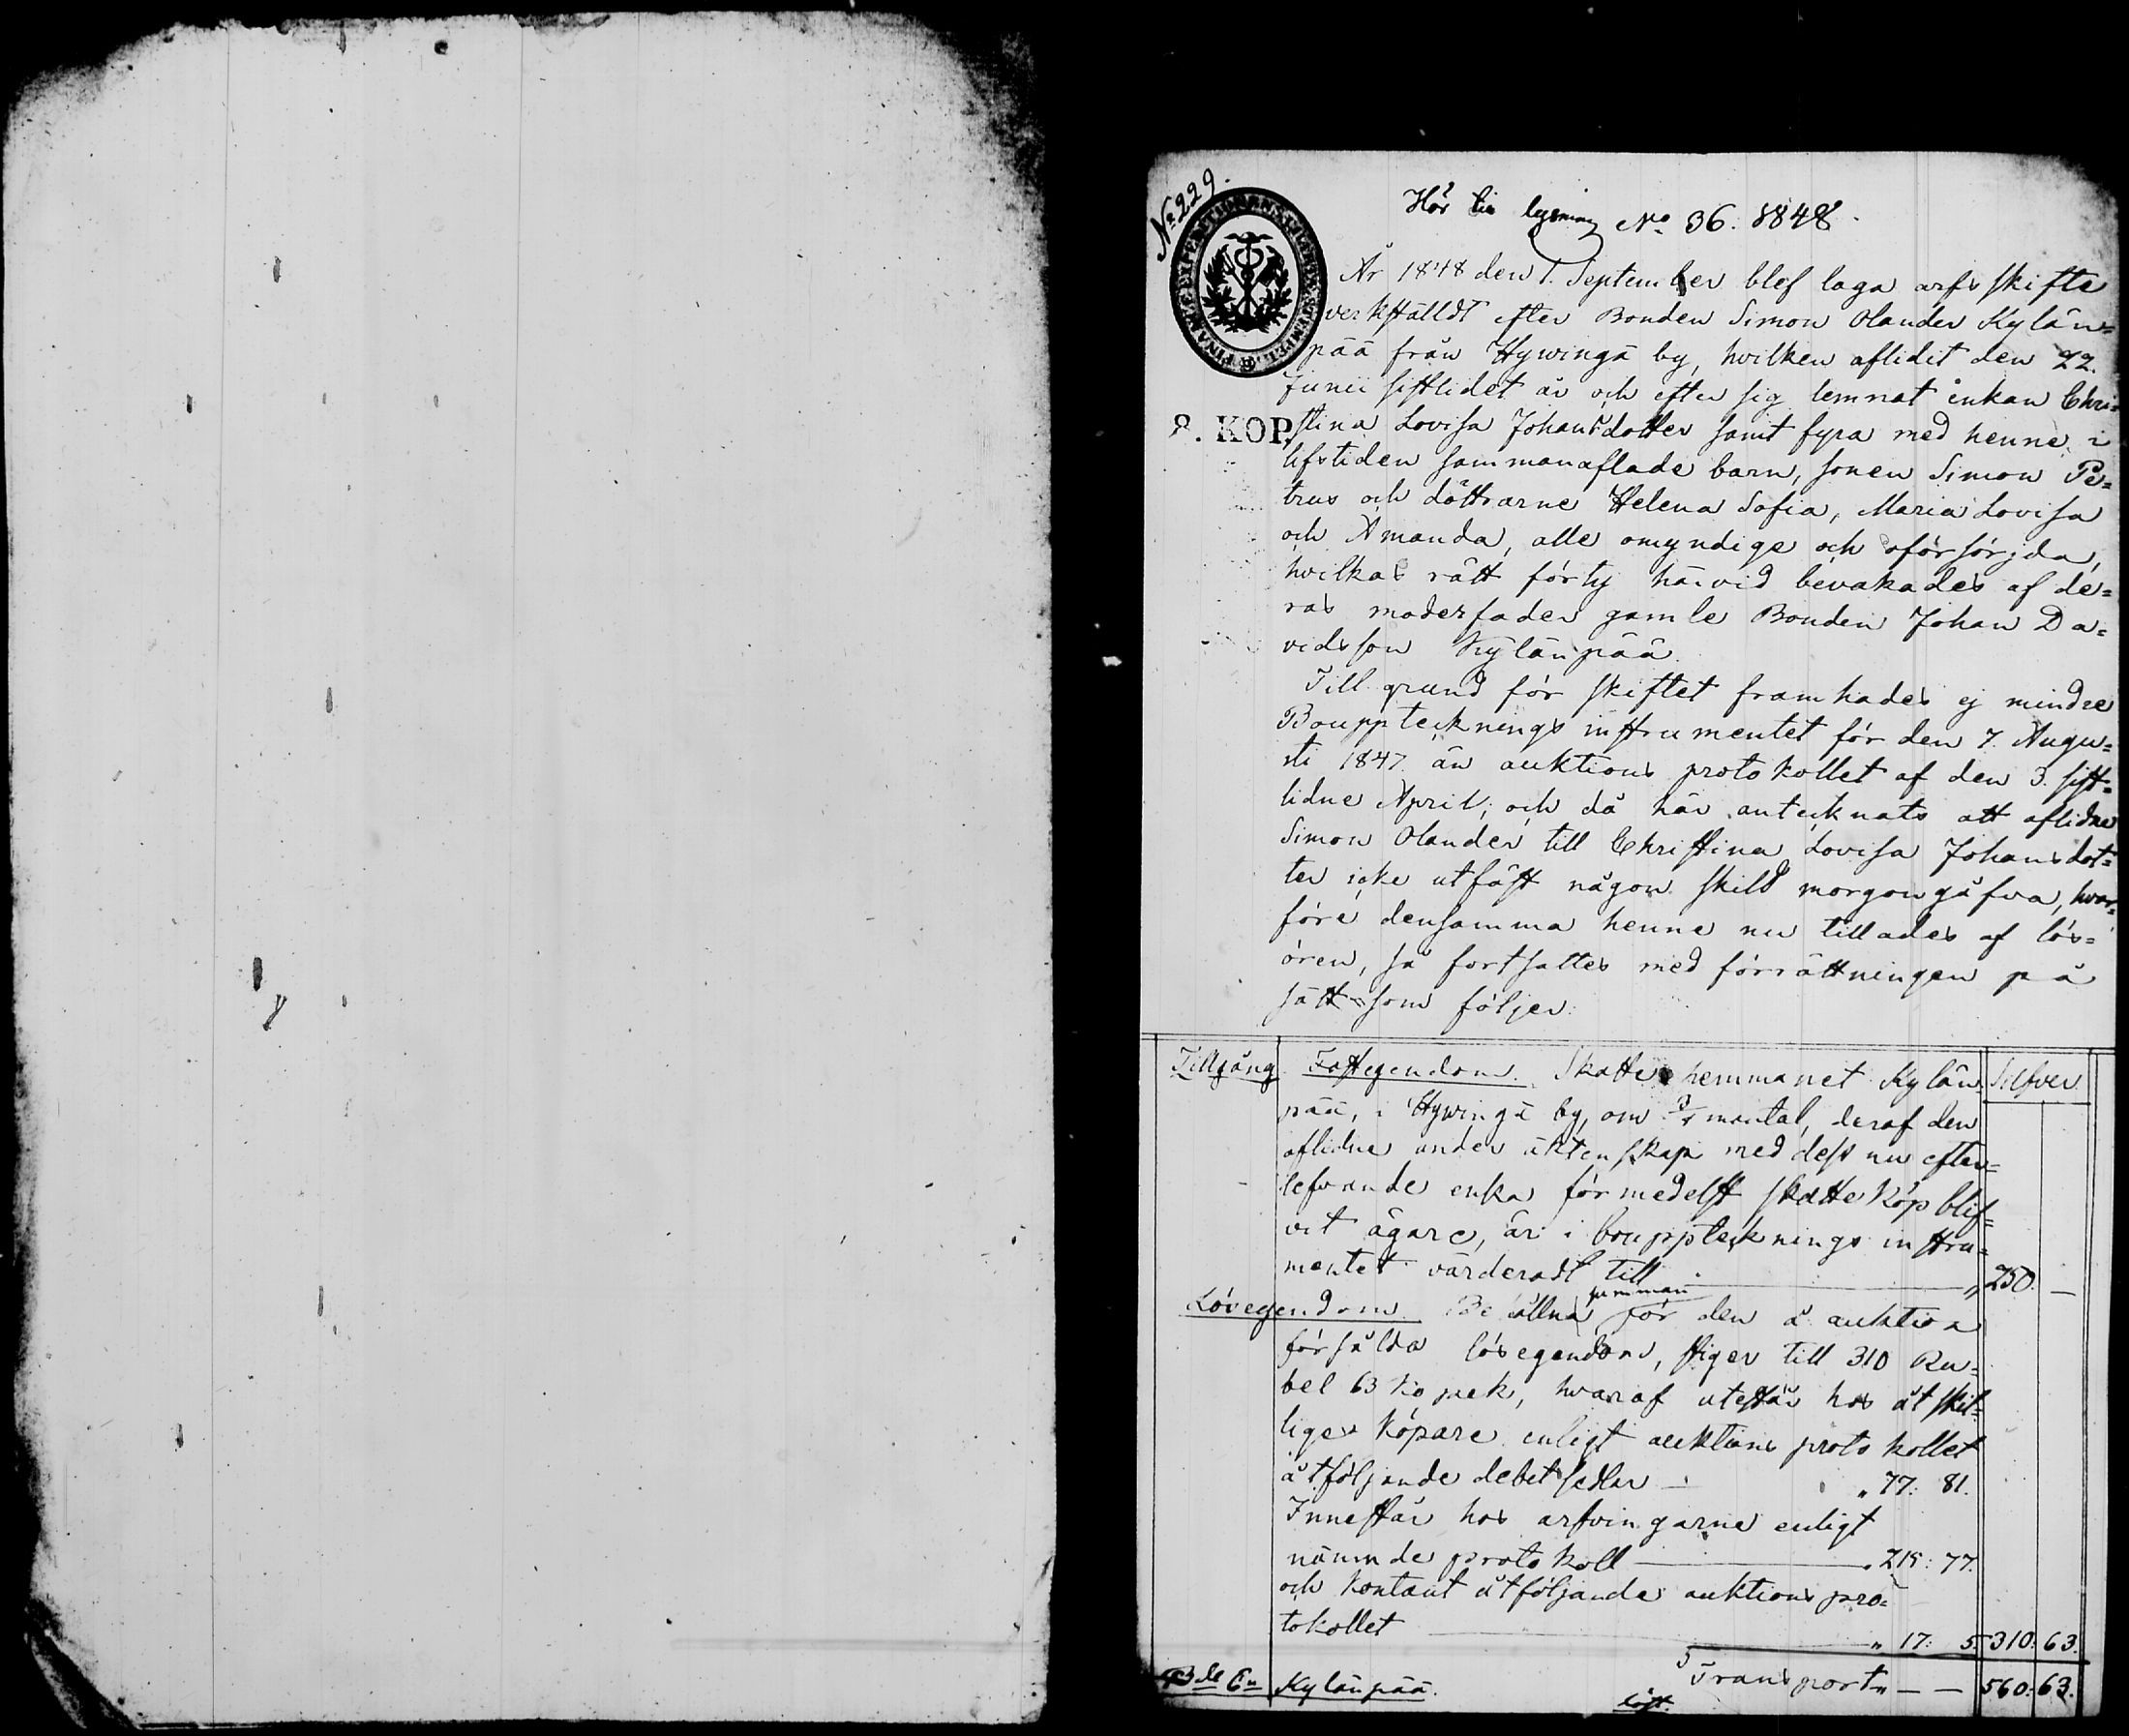 No 229.
Hör till lysning No 36. 1848.
År 1848 den 1. September blef laga arfs skifte
verkställdt efter Bonden Simon Olander Kylän=
pää från Hywingä by, hvilken aflidit den 22.
Junii sistlidet år och efter sig lemnat enkan Chri=
8. KOP.
stina Lovisa Johansdotter samt fyra med henne i
lifstiden sammanaflade barn, sonen Simon Pe=
trus och döttrarne Helena Sofia, Maria Lovisa
och Amanda, alle omyndige och oförsörjda,
hvilkas rätt förty härvid bevakades af de=
ras moderfader gamle Bonden Johan Da=
vidsson Kylänpää.
Till grund för skiftet framhades ej mindre
Bouppteckningsinstrumentet för den 7. Augu=
sti 1847 än auktions protokollet af den 3. sist=
lidne April; och då här antecknats att aflidne
Simon Olander till Christina Lovisa Johansdot=
ter icke utfäst någon skild morgongåfva, hvar=
före densamma henne nu tillades af lös=
ören, så fortsattes med förrättningen på
sätt som följer:
Tillgång Fastegendom. Skattehemmanet Kylän Silfver.
pää, i Hywingä by, om mantal, deraf den
aflidne under äktenskap med dess nu efter=
lefvande enka förmedelst skatteköp blif=
vit ägare, är i bouppteckningsinstru=
mentet värderadt till " 250. —
Lösegendom. Behållna summan för den å auktion
försålda lösegendom, stiger till 310 Ru=
bel 63 kopek, hvaraf utestår hos åtskil=
lige köpare enligt auktions protokollet
åtföljande debetsedlar — " 77: 81.
Innestår hos arfvingarne enligt
nämnde protokoll — " 215: 77.
och kontant åtföljande auktions pro=
tokollet — " 17: 5. 310: 63.
Kylänpää. Transport " — — 560: 63.